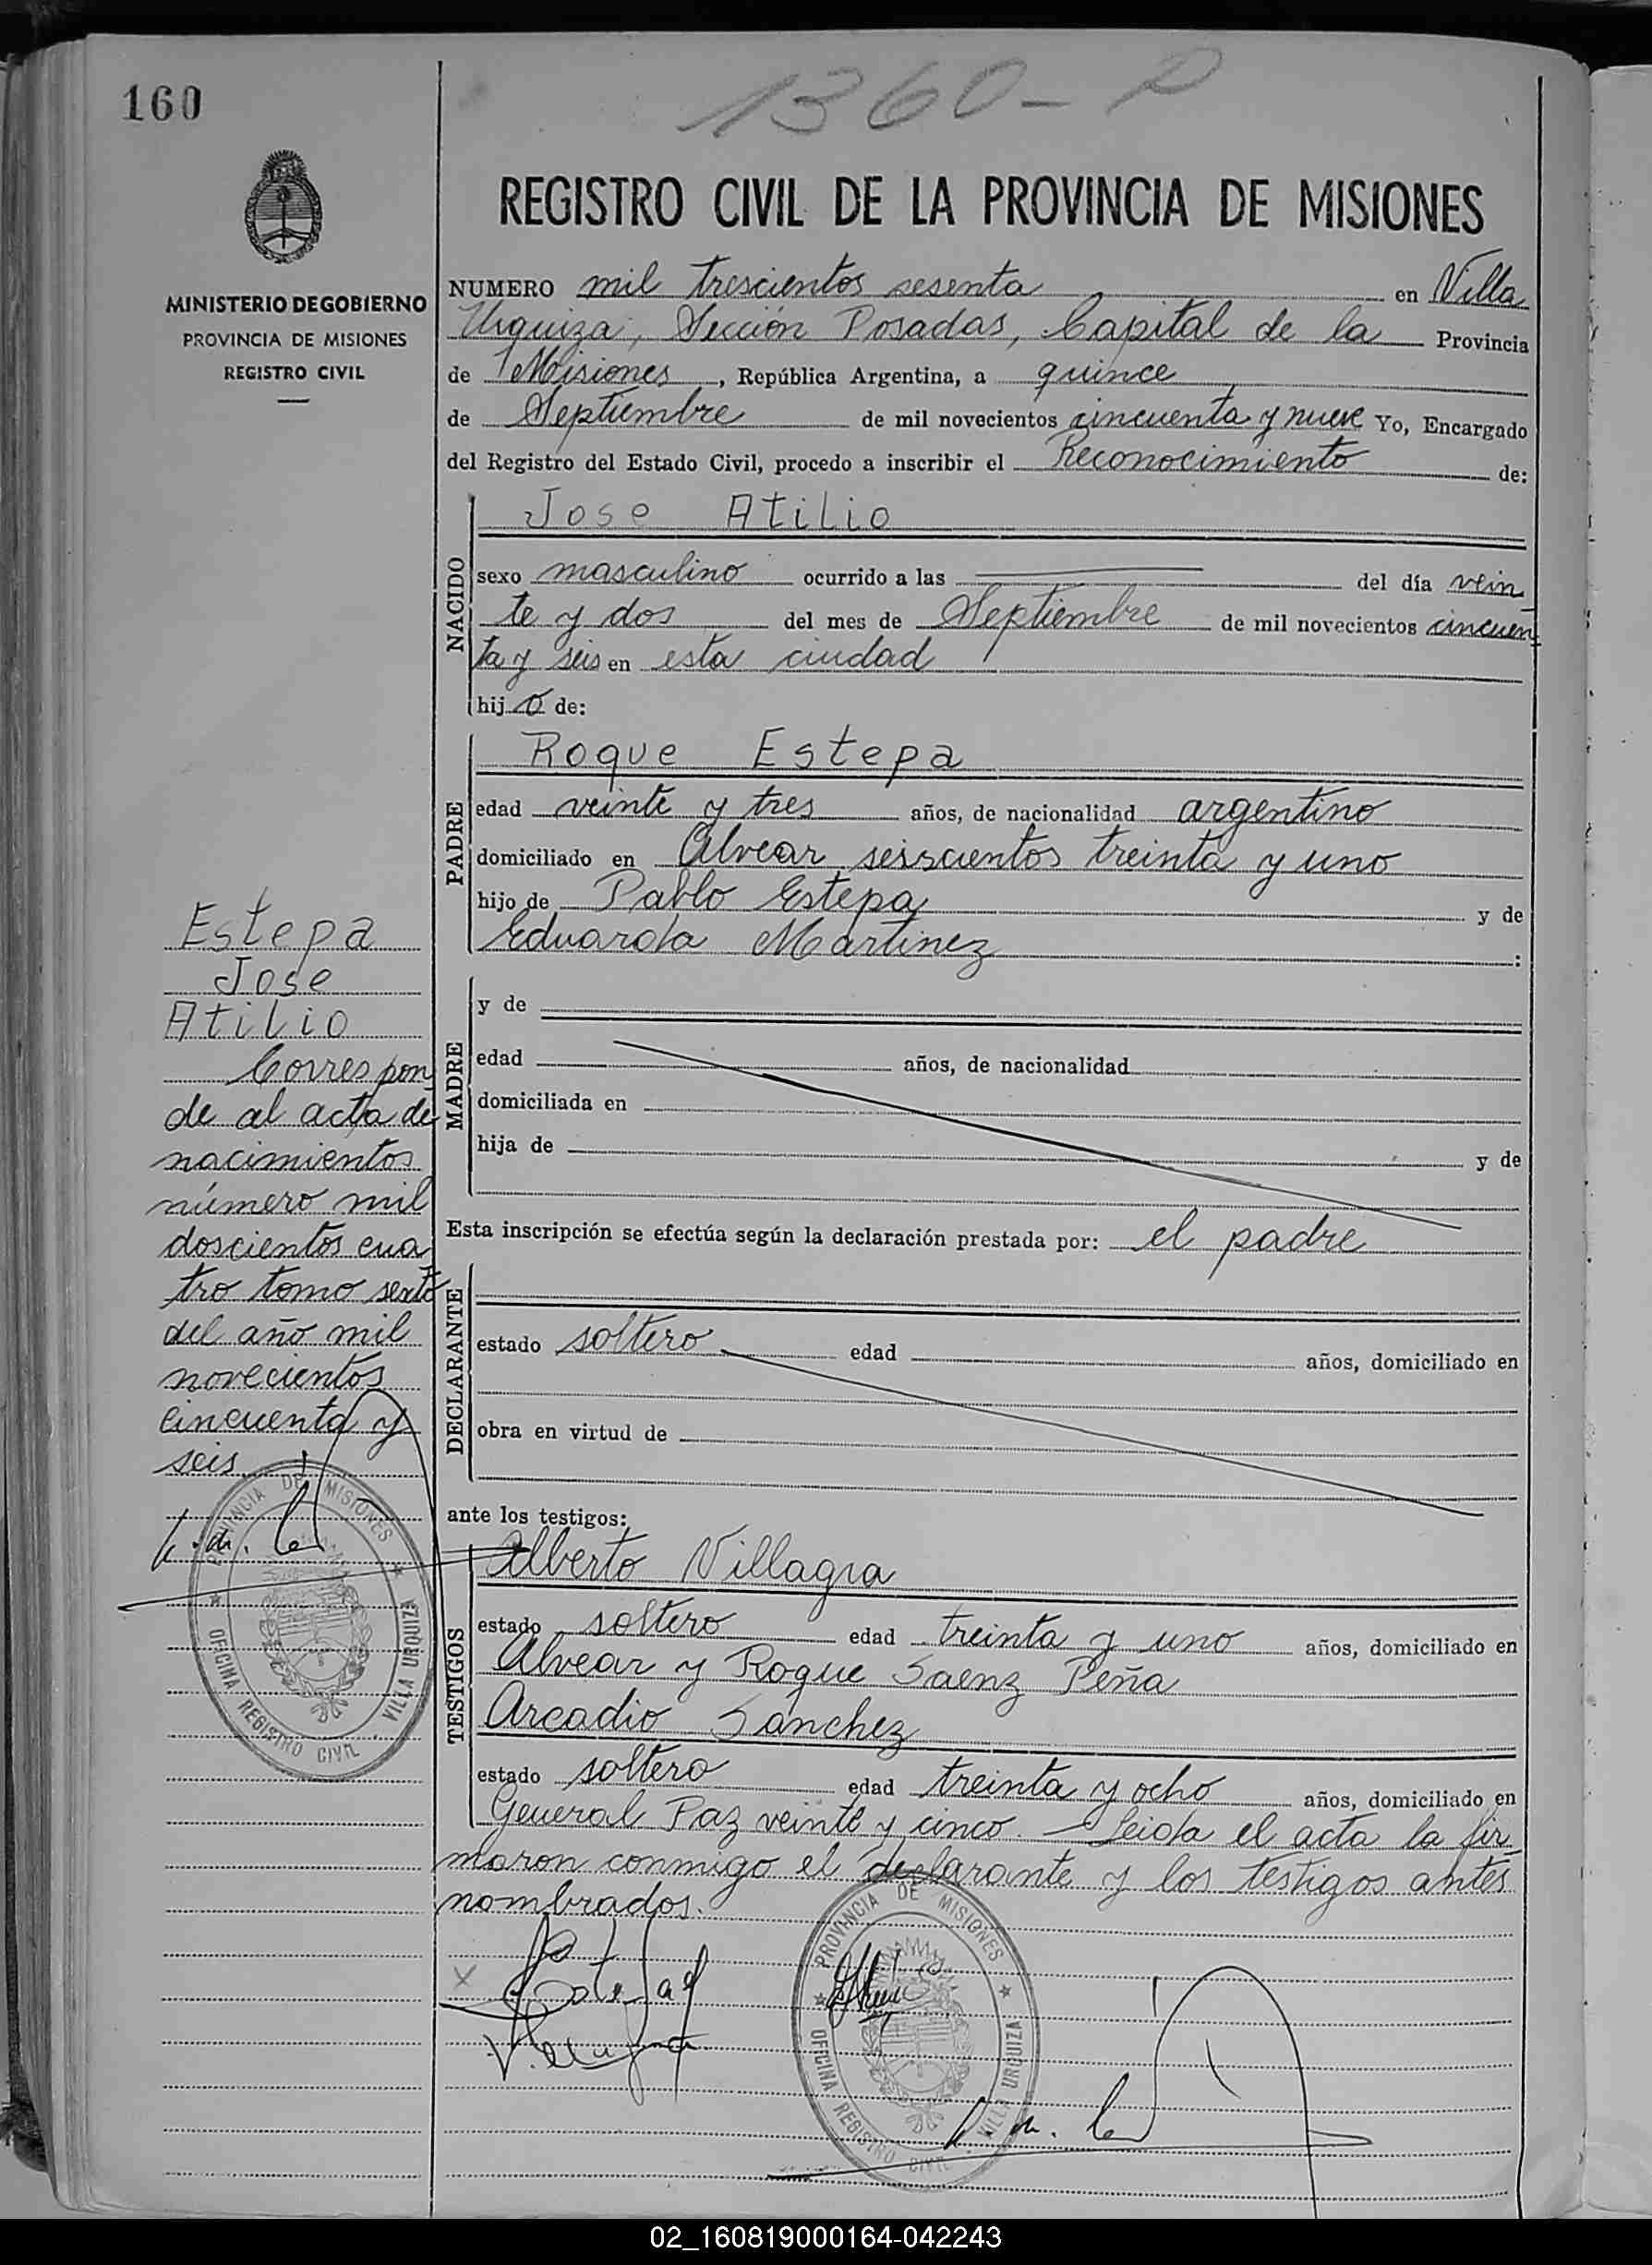 160
1360-P
REGISTRO CIVIL DE LA PROVINCIA DE MISIONES
MINISTERIO DE GOBIERNO
PROVINCIA DE MISIONES
REGISTRO CIVIL
NUMERO mil trescientos sesenta en Villa
Urquiza, Sección Posadas, Capital de la Provincia
de Misiones, República Argentina, a quince
de Septiembre de mil novecientos cincuenta y nueve Yo, Encargado
del Registro del Estado Civil, procedo a inscribir el Reconocimiento de:
NACIDO
Jose Atilio
sexo masculino ocurrido a las del día vein
te y dos del mes de Septiembre de mil novecientos cincuen
ta y seis en esta ciudad
hijo de:
PADRE
Roque Estepa
edad veinte y tres años, de nacionalidad argentino
domiciliado en Alvear seiscientos treinta y uno
hijo de Pablo Estepa y de
Eduarda Martinez :
MADRE
y de
edad años, de nacionalidad
domiciliada en
hija de y de
Esta inscripción se efectúa según la declaración prestada por: el padre
DECLARANTE
estado soltero edad años, domiciliado en
obra en virtud de
ante los testigos:
TESTIGOS
Alberto Villagra
estado soltero edad treinta y uno años, domiciliado en
Alvear y Roque Saenz Peña
Arcadio Sánchez
estado soltero edad treinta y ocho años, domiciliado en
General Paz veinte y cinco. — Leida el acta la fir
maron conmigo el declarante y los testigos antes
nombrados.
Estepa
Jose
Atilio
Correspon
de al acta de
nacimientos
número mil
doscientos cua
tro tomo sexto
del año mil
novecientos
cincuenta y
seis
PROVINCIA DE MISIONES
OFICINA REGISTRO CIVIL VILLA URQUIZA
PROVINCIA DE MISIONES
OFICINA REGISTRO CIVIL VILLA URQUIZA
02_160819000164-042243